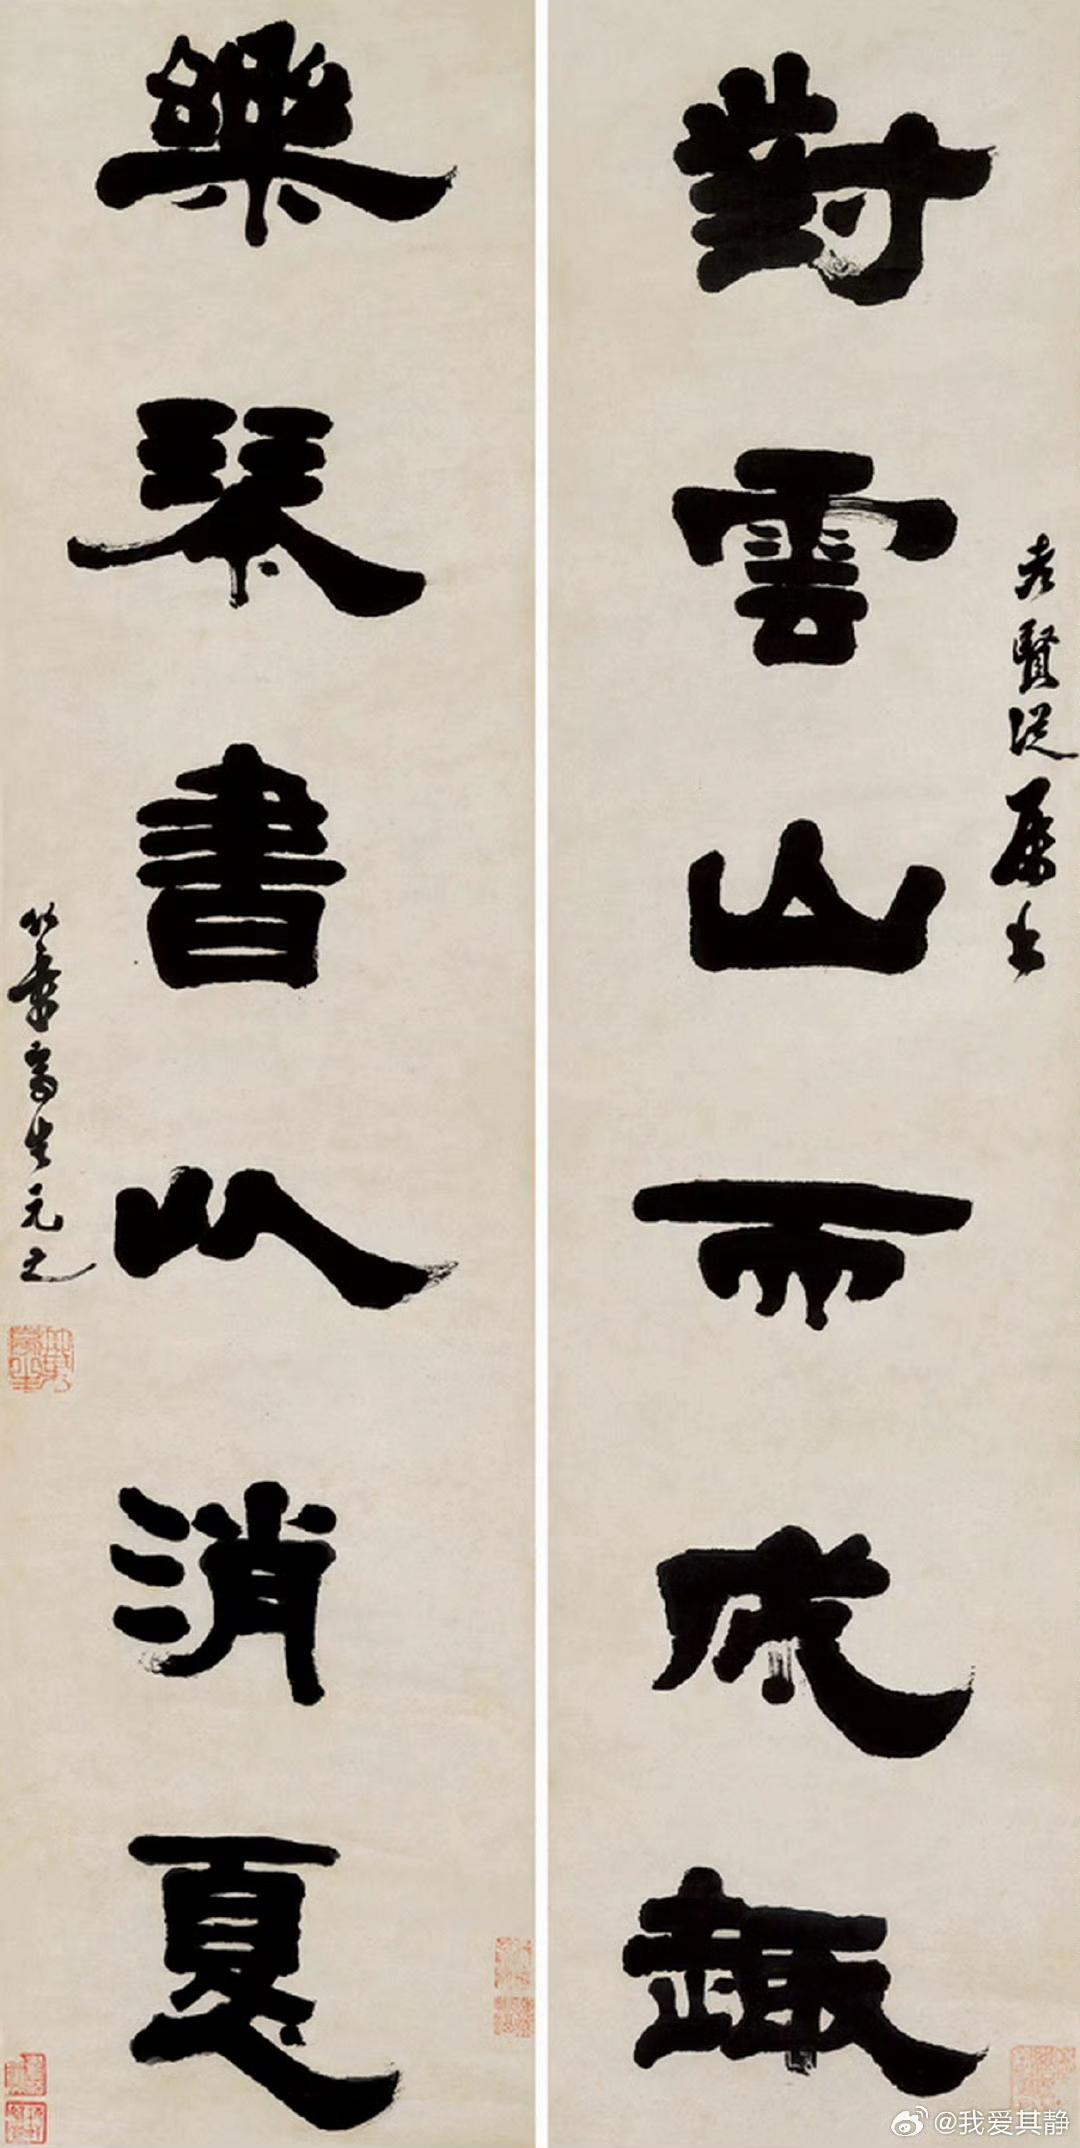 對雲山而成趣
老賢從屬書
樂琴書以消夏
竹叢喬生元之
@我爱其静